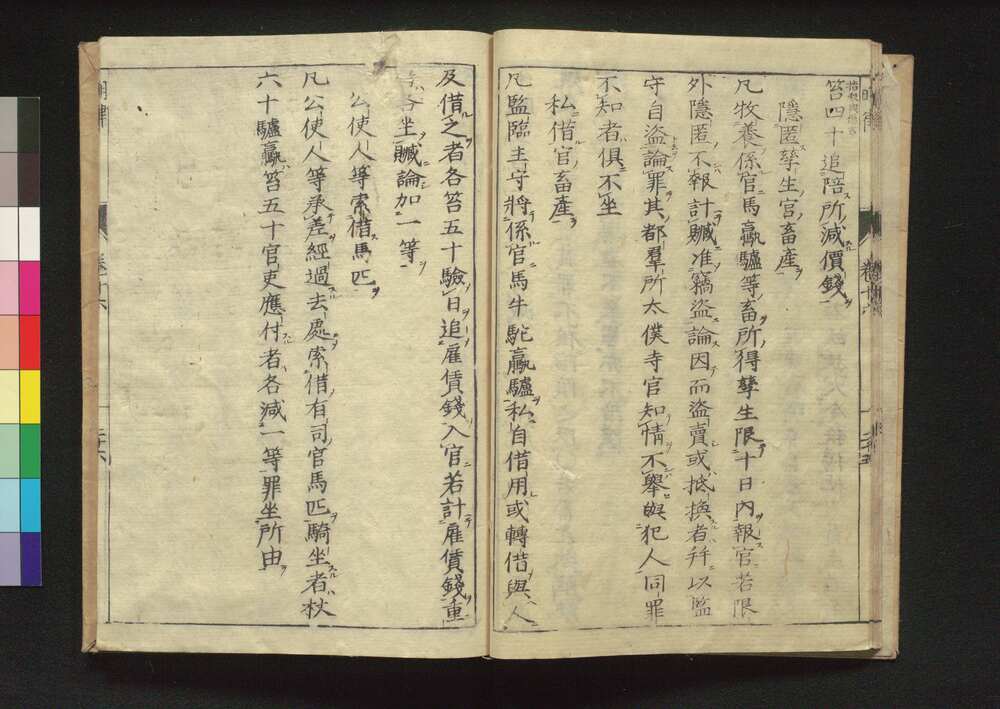 笞四十追陪所減價錢
隱匿孳生官畜產
凡牧養係官馬驘驢等畜所得孳生限十日內報官若限
外隱匿不報計贓准竊盜論因而盜賣或抵換者幷以監
守自盜論罪其都羣所太僕寺官知情不舉與犯人同罪
不知者俱不坐
私借官畜產
凡監臨主守將係官馬牛駝驘驢私自借用或轉借與人
及借之者各笞五十驗日追雇賃錢入官若計雇賃錢重
者各坐贓論加一等
公使人等索借馬匹
凡公使人等承差經過去處索借有司官馬匹騎坐者杖
六十驢驘笞五十官吏應付者各減一等罪坐所由
明律
卷十六
二十六